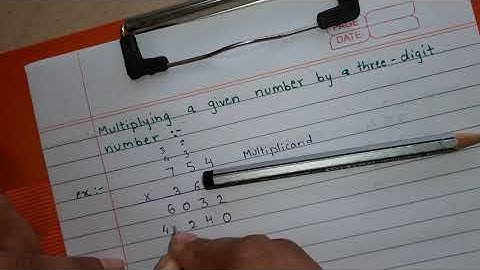 PAGE
DATE
Multiplying a given number by a three-digit
number :-
3 2
4 3
ex:- 7 5 4 Multiplicand
x 3 6
6 0 3 2
4 2 4 0